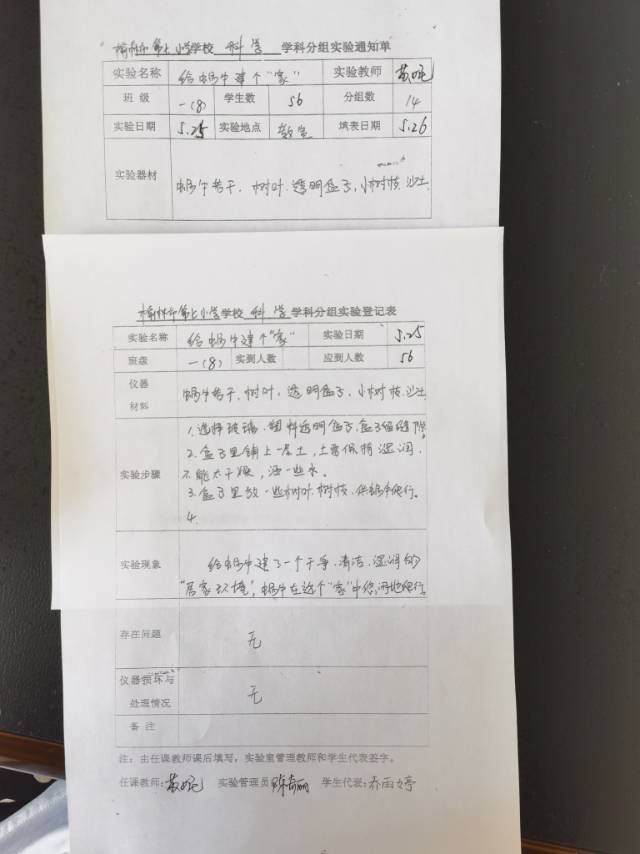 榆林市第七小学学校 科学 学科分组实验通知单
实验名称 给蜗牛建个“家” 实验教师
班 级 一(8) 学生数 56 分组数 14
实验日期 5.25 实验地点 教室 填表日期 5.26
实验器材 蜗牛若干、树叶、透明盒子、小树枝、沙土
榆林市第七小学学校 科学 学科分组实验登记表
实验名称 给蜗牛建个“家” 实验日期 5.25
班级 一(8) 实到人数 应到人数 56
仪器
材料 蜗牛若干、树叶、透明盒子、小树枝、沙土
1.选择玻璃、塑料透明盒子,盒子留缝隙。
2.盒子里铺上一层土,土要保持湿润,
实验步骤 不能太干燥,洒一些水。
3.盒子里放一些树叶、树枝,供蜗牛爬行。
4.
实验现象 给蜗牛建了一个干净、清洁、湿润的
“居家环境”,蜗牛在这个“家”中悠闲地爬行。
存在问题 无
仪器损坏与
处理情况 无
备 注
注：由任课教师课后填写，实验室管理教师和学生代表签字。
任课教师: 实验管理员: 学生代表: